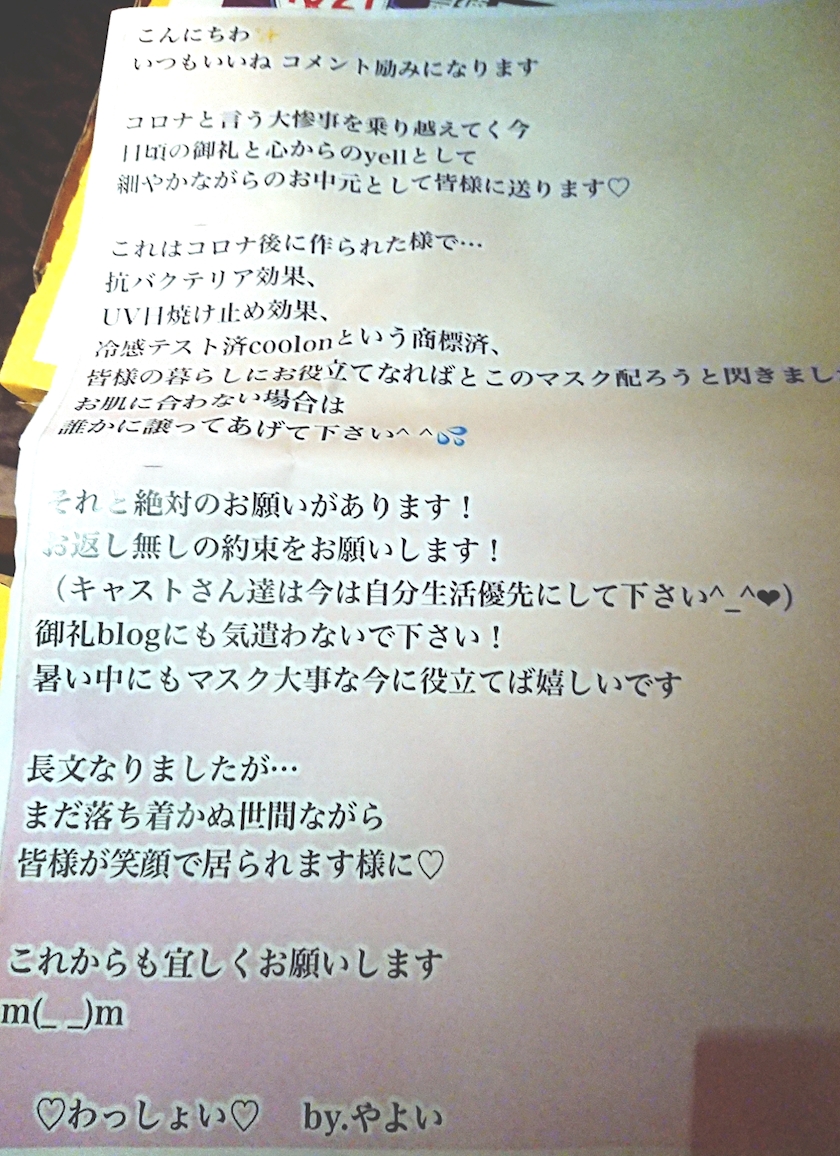 こんにちわ✨
いつもいいね コメント励みになります
コロナと言う大惨事を乗り越えてく今
日頃の御礼と心からのyellとして
細やかながらのお中元として皆様に送ります♡
これはコロナ後に作られた様で…
抗バクテリア効果、
UV日焼け止め効果、
冷感テスト済coolonという商標済、
皆様の暮らしにお役立てなればとこのマスク配ろうと閃きまし
お肌に合わない場合は
誰かに譲ってあげて下さい^ ^💦
それと絶対のお願いがあります！
お返し無しの約束をお願いします！
（キャストさん達は今は自分生活優先にして下さい^_^❤）
御礼blogにも気遣わないで下さい！
暑い中にもマスク大事な今に役立てば嬉しいです
長文なりましたが…
まだ落ち着かぬ世間ながら
皆様が笑顔で居られます様に♡
これからも宜しくお願いします
m(_ _)m
♡わっしょい♡ by.やよい